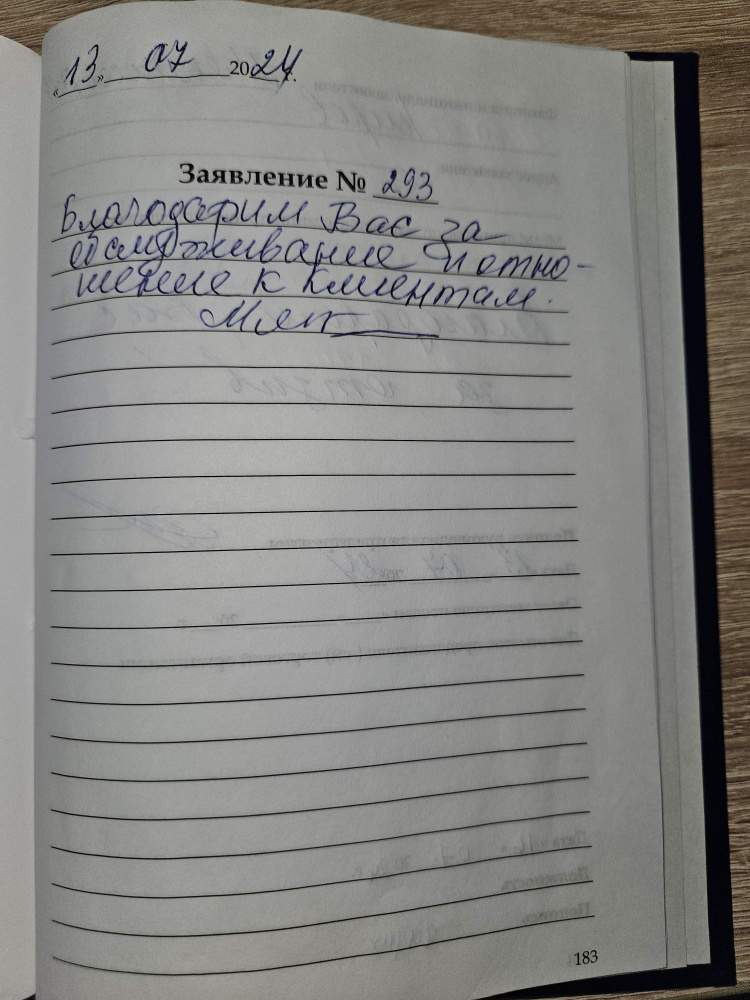 "13" 07 2024.
Заявление № 293
Благодарим Вас за
обслуживание и отно-
шение к клиентам.
183